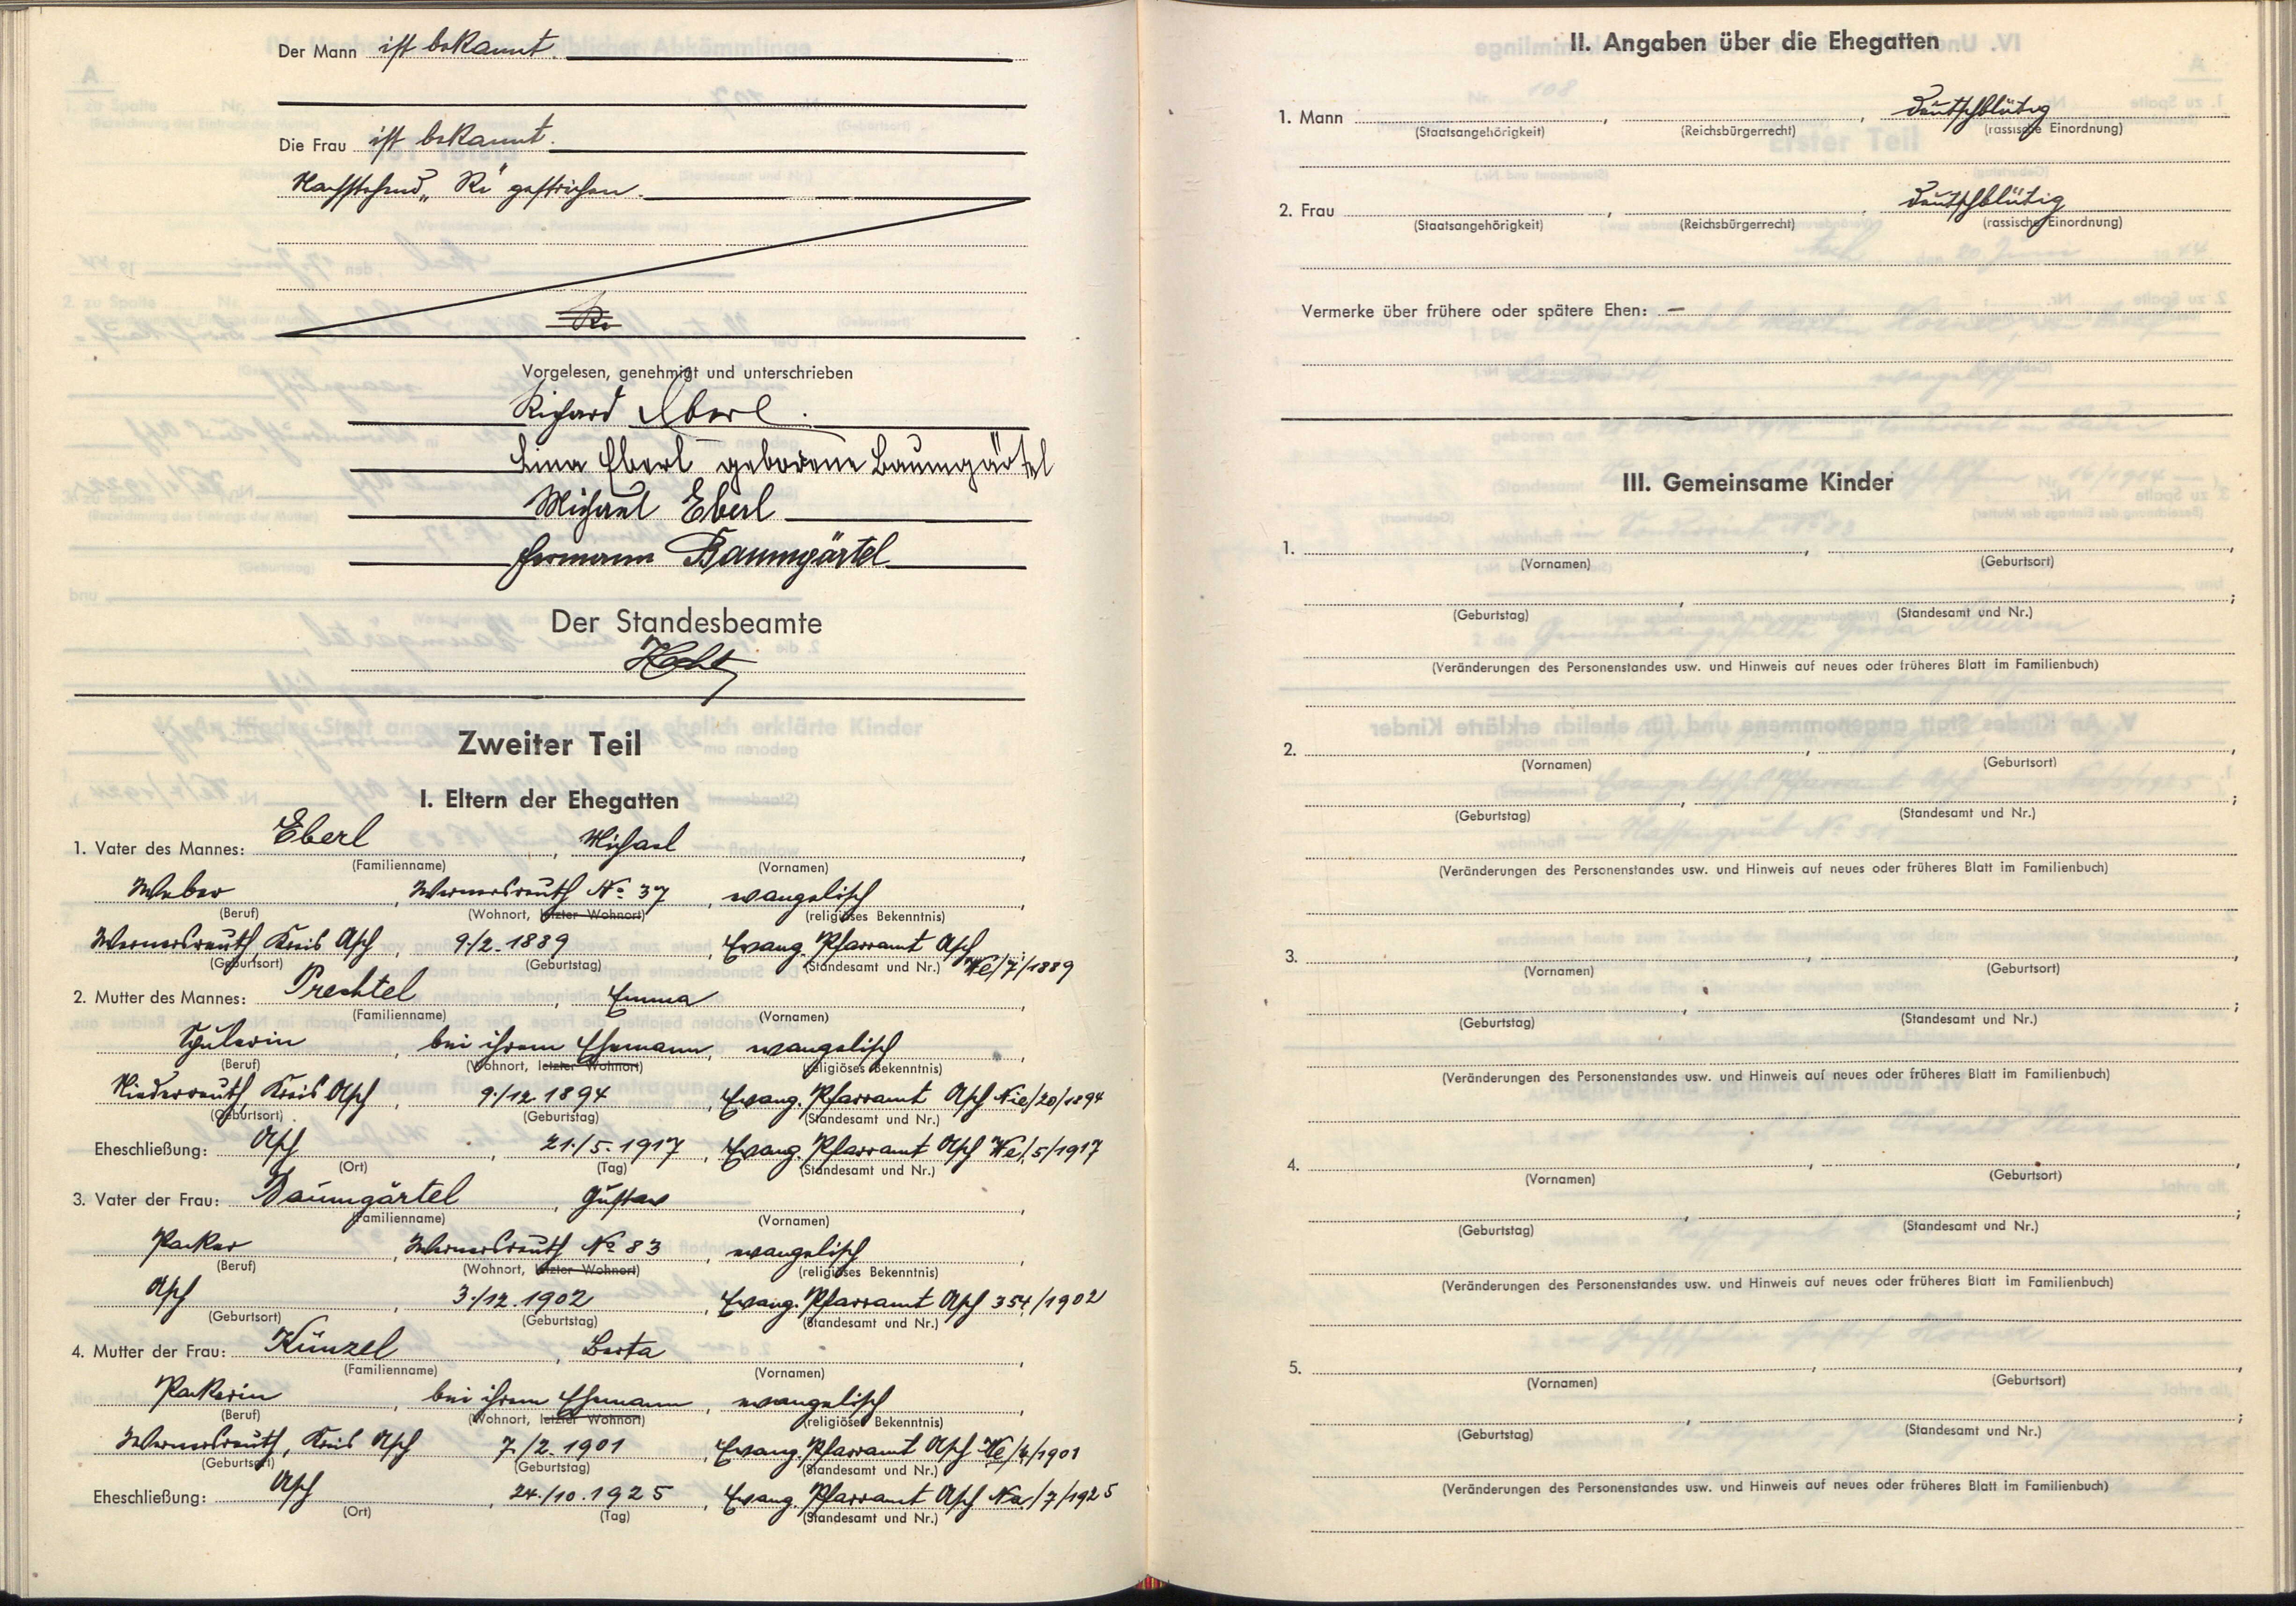 Der Mann ist bekannt.
Die Frau ist bekannt.
Nachstehend „Ri" gestrichen.
Ri
Vorgelesen, genehmigt und unterschrieben
Richard Eberl.
Lina Eberl geborene Baumgärtel
Michael Eberl
Hermann Baumgärtel
Der Standesbeamte
Zweiter Teil
I. Eltern der Ehegatten
1. Vater des Mannes: Eberl, Michael,
(Familienname) (Vornamen)
Weber, Wernersreuth No 37, evangelisch,
(Beruf) (Wohnort, letzter Wohnort) (religiöses Bekenntnis)
Wernersreuth, Kreis Asch, 9./2. 1889 Evang. Pfarramt Asch We/7/1889
(Geburtsort) (Geburtstag) (Standesamt und Nr.)
2. Mutter des Mannes: Prechtel, Emma,
(Familienname) (Vornamen)
Spulerin, bei ihrem Ehemann, evangelisch,
(Beruf) (Wohnort, letzter Wohnort) (religiöses Bekenntnis)
Niederreuth, Kreis Asch, 9./12 1894, Evang. Pfarramt Asch Nie/20/1894
(Geburtsort) (Geburtstag) (Standesamt und Nr.)
Eheschließung: Asch, 21./5. 1917, Evang. Pfarramt Asch We/5/1917
(Ort) (Tag) (Standesamt und Nr.)
3. Vater der Frau: Baumgärtel, Gustav,
(Familienname) (Vornamen)
Packer, Wernersreuth No 83, evangelisch,
(Beruf) (Wohnort, letzter Wohnort) (religiöses Bekenntnis)
Asch, 3./12. 1902, Evang. Pfarramt Asch 354/1902
(Geburtsort) (Geburtstag) (Standesamt und Nr.)
4. Mutter der Frau: Künzel, Berta,
(Familienname) (Vornamen)
Packerin, bei ihrem Ehemann, evangelisch,
(Beruf) (Wohnort, letzter Wohnort) (religiöses Bekenntnis)
Wernersreuth, Kreis Asch 7./2. 1901, Evang. Pfarramt Asch We/4/1901
(Geburtsort) (Geburtstag) (Standesamt und Nr.)
Eheschließung: Asch, 24./10. 1925, Evang. Pfarramt Asch Na/7/1925
(Ort) (Tag) (Standesamt und Nr.)
II. Angaben über die Ehegatten
1. Mann , , deutschblütig
(Staatsangehörigkeit) (Reichsbürgerrecht) (rassische Einordnung)
2. Frau , , deutschblütig
(Staatsangehörigkeit) (Reichsbürgerrecht) (rassische Einordnung)
Vermerke über frühere oder spätere Ehen: —
III. Gemeinsame Kinder
1. , ,
(Vornamen) (Geburtsort)
, ;
(Geburtstag) (Standesamt und Nr.)
(Veränderungen des Personenstandes usw. und Hinweis auf neues oder früheres Blatt im Familienbuch)
2. , ,
(Vornamen) (Geburtsort)
, ;
(Geburtstag) (Standesamt und Nr.)
(Veränderungen des Personenstandes usw. und Hinweis auf neues oder früheres Blatt im Familienbuch)
3. , ,
(Vornamen) (Geburtsort)
, ;
(Geburtstag) (Standesamt und Nr.)
(Veränderungen des Personenstandes usw. und Hinweis auf neues oder früheres Blatt im Familienbuch)
4. , ,
(Vornamen) (Geburtsort)
, ;
(Geburtstag) (Standesamt und Nr.)
(Veränderungen des Personenstandes usw. und Hinweis auf neues oder früheres Blatt im Familienbuch)
5. , ,
(Vornamen) (Geburtsort)
, ;
(Geburtstag) (Standesamt und Nr.)
(Veränderungen des Personenstandes usw. und Hinweis auf neues oder früheres Blatt im Familienbuch)